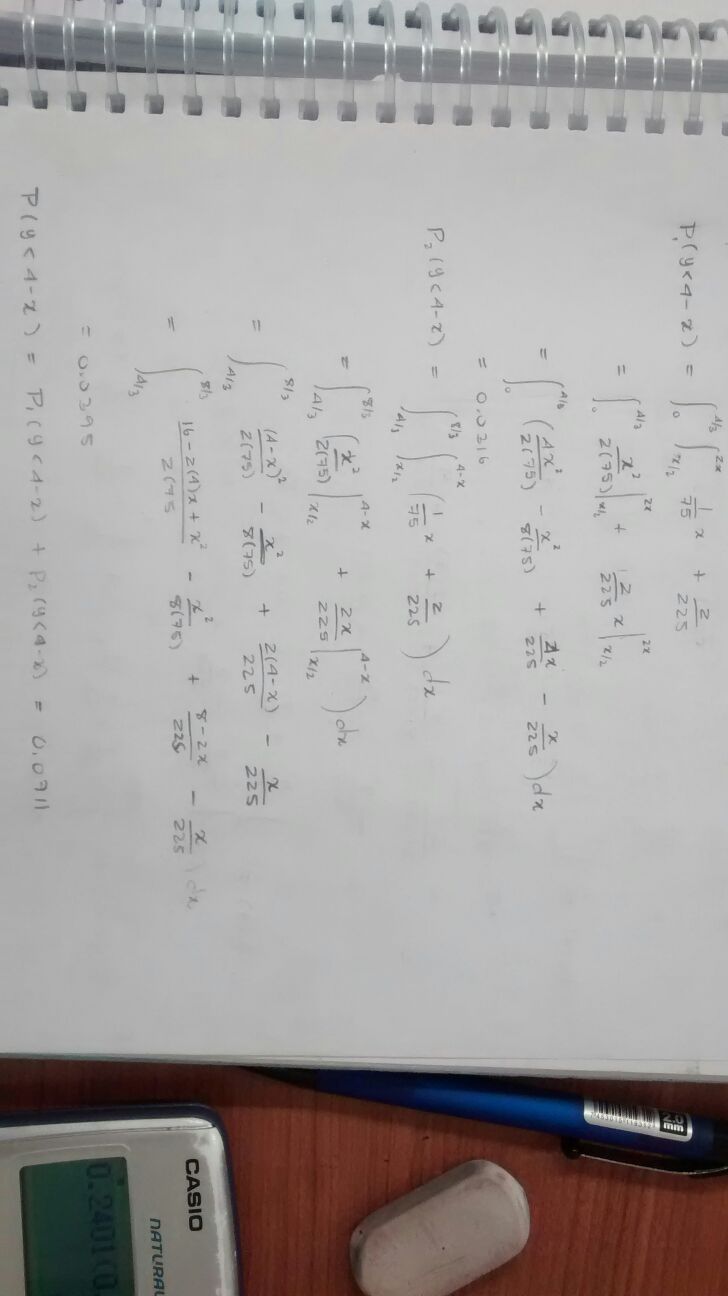 P₁(y<4-x) = ∫₀^{4/3} ∫_{x/2}^{2x} 1/75 x + 2/225
= ∫₀^{4/3} x²/2(75) |_{x/2}^{2x} + 2/225 x |_{x/2}^{2x}
= ∫₀^{4/3} (4x²/2(75) - x²/8(75) + 4x/225 - x/225) dx
= 0.0316
P₂(y<4-x) = ∫_{4/3}^{8/3} ∫_{x/2}^{4-x} (1/75 x + 2/225) dx
= ∫_{4/3}^{8/3} (x²/2(75) |_{x/2}^{4-x} + 2x/225 |_{x/2}^{4-x}) dx
= ∫_{4/3}^{8/3} (4-x)²/2(75) - x²/8(75) + 2(4-x)/225 - x/225
= ∫_{4/3}^{8/3} 16-2(4)x+x²/2(75 - x²/8(75) + 8-2x/225 - x/225) dx
= 0.0395
P(y<4-x) = P₁(y<4-x) + P₂(y<4-x) = 0.0711
CASIO
NATURAL
0.2401(0.